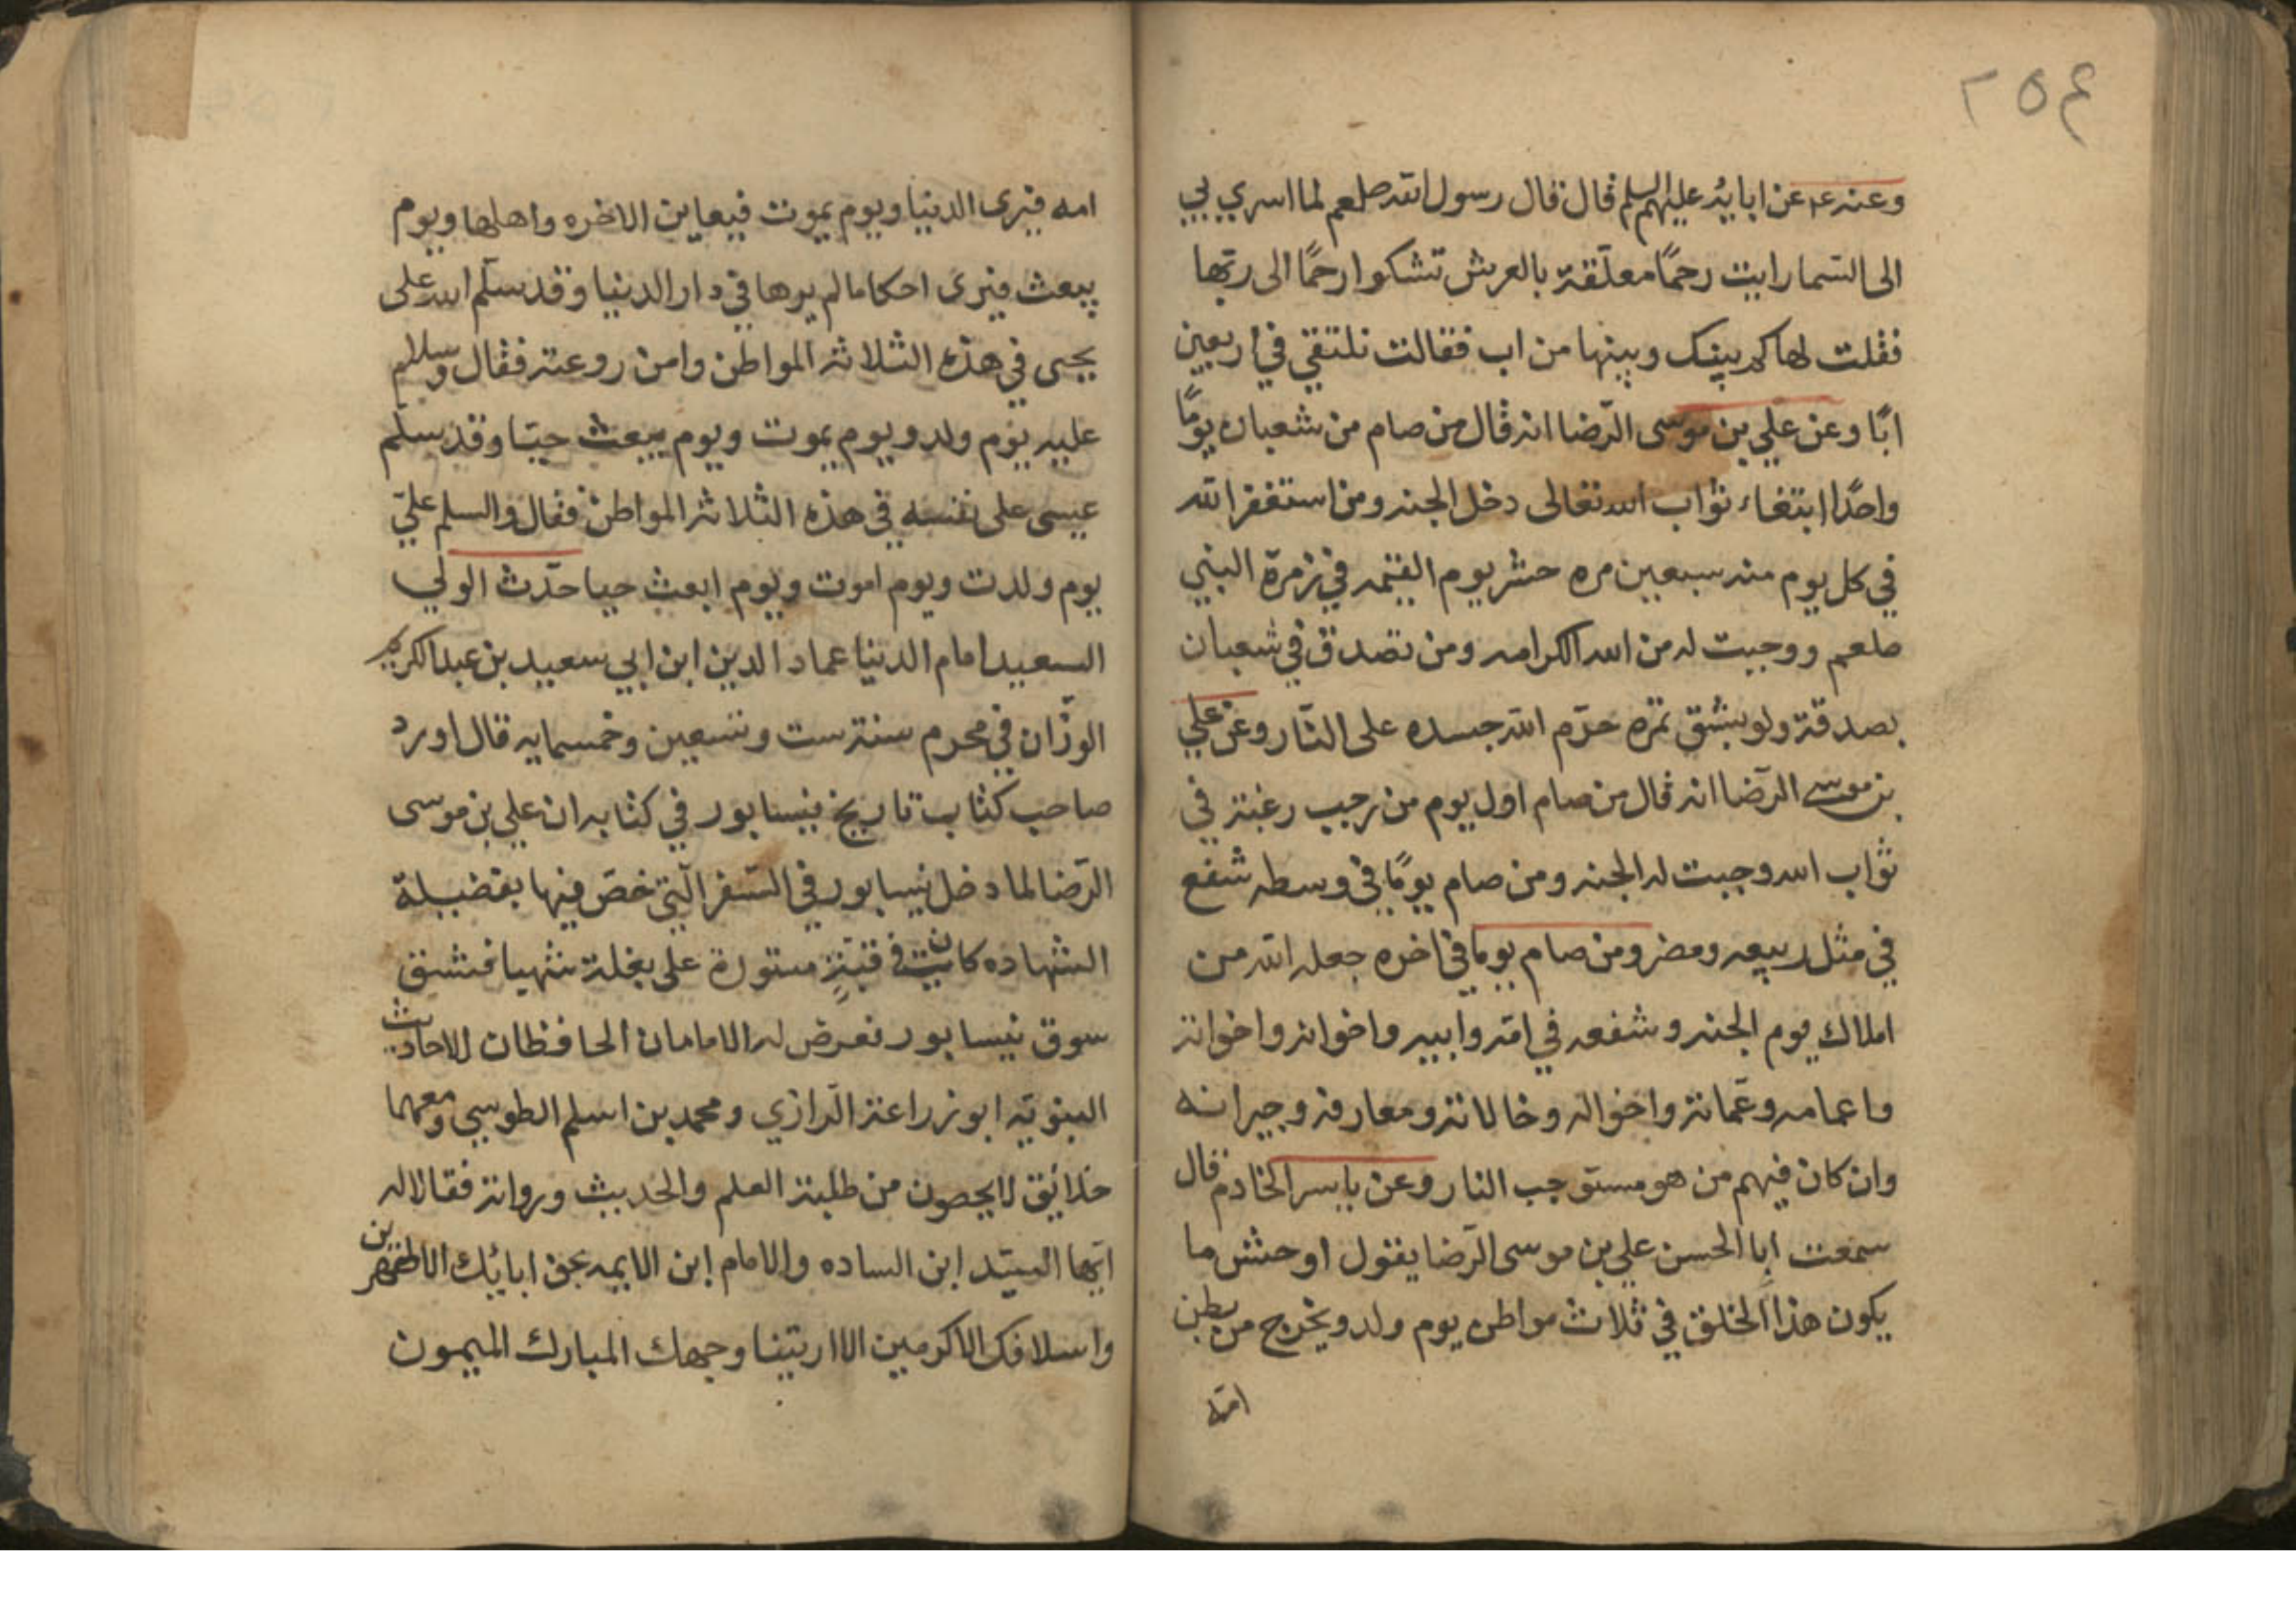 ٢٥٤
وعنه ع م عن ابايه عليهم السلم قال قال رسول الله صلعم لما اسري بي
الى السما رايت رحمًا معلّقة بالعرش تشكوا رحمًا الى ربّها
فقلت لها كم بينك وبينها من اب فقالت نلتقي في اربعين
ابًا وعن علي بن موسى الرّضا انه قال من صام من شعبان يومًا
واحدًا ابتغاء ثواب الله تعالى دخل الجنه ومن استغفر الله
في كل يوم منه سبعين مره حشر يوم القيمه في زمرة النبي
صلعم ووجبت له من الله الكرامه ومن تصدق في شعبان
بصدقة ولو بشق تمره حرّم الله جسده على النّار وعن علي
بن موسى الرّضا انه قال من صام اول يوم من رجب رغبة في
ثواب الله وجبت له الجنه ومن صام يومًا في وسطه شفع
في مثل ربيعه ومضر ومن صام يوما في اخره جعله الله من
املاك يوم الجنه وشفعه في امّه وابيه واخوانه واخواته
واعمامه وعمّاته واخواله وخالاته ومعارفه وجيرانه
وان كان فيهم من هو مستوجب النار وعن ياسر الخادم قال
سمعت ابا الحسن علي بن موسى الرّضا يقول اوحش ما
يكون هذا الخلق في ثلاث مواطن يوم ولد ويخرج من بطن
امّه
امه فيرى الدنيا ويوم يموت فيعاين الاخره واهلها ويوم
يبعث فيرى احكاما لم يرها في دار الدنيا وقد سلّم الله على
يحيى في هذه الثلاثه المواطن وامن روعته فقال وسلام
عليه يوم ولد ويوم يموت ويوم يبعث حيّا وقد سلّم
عيسى على نفسه في هذه الثلاثه المواطن فقال والسلم عليّ
يوم ولدت ويوم اموت ويوم ابعث حيا حدّث الولي
السعيد امام الدنيا عماد الدين ابن ابي سعيد بن عبد الكريم
الوزّان في محرم سنة ست وتسعين وخمسمايه قال اورد
صاحب كتاب تاريخ نيسابور في كتابه ان علي بن موسى
الرّضا لما دخل نيسابور في السّفر الّتي خصّ فيها بفضيلة
الشهاده كان في قبّةٍ مستورة على بغلة شهبا فشق
سوق نيسابور فعرض له الامامان الحافظان للاحاديث
النبويّه ابو زراعة الرازي ومحمد بن اسلم الطوسي ومعهما
خلائق لا يحصون من طلبة العلم والحديث ورواته فقالا له
ايّها السيّد ابن الساده والامام ابن الايمه بحق ابائك الاطهرين
واسلافك الاكرمين الا اريتنا وجهك المبارك الميمون